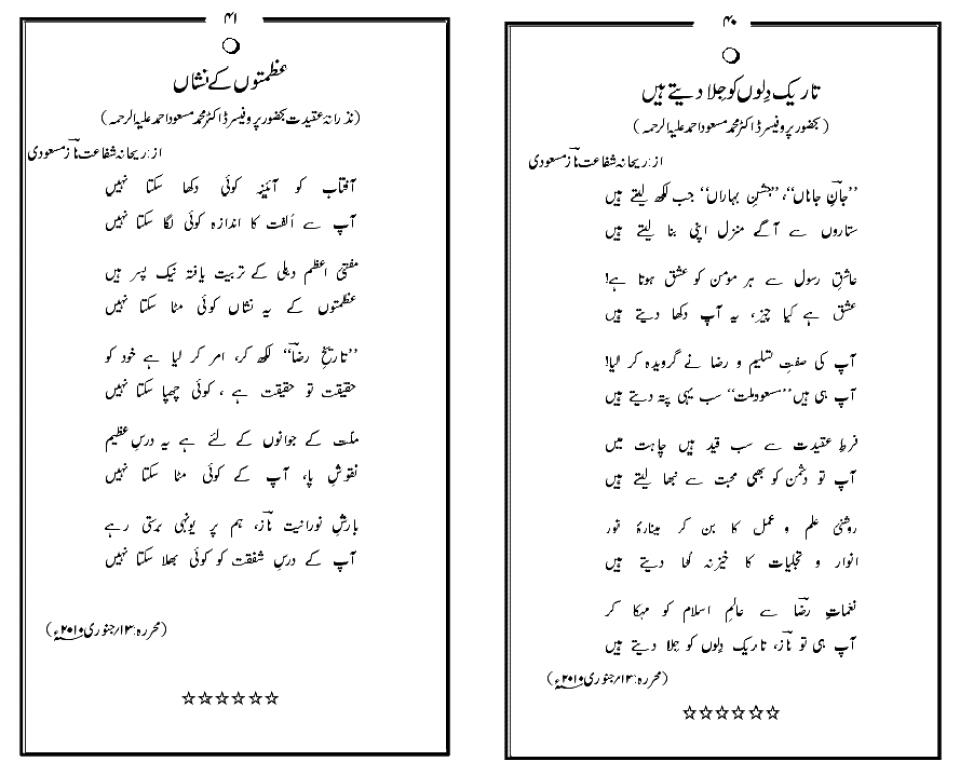 ۴۰
تاریک دِلوں کو جِلا دیتے ہیں
(بحضور پروفیسر ڈاکٹر محمد مسعود احمد علیہ الرحمہ)
از: ریحانہ شفاعت نازؔ مسعودی
’’جانِ جاناں‘‘، ’’جشنِ بہاراں‘‘ جب لکھ لیتے ہیں
ستاروں سے آگے منزل اپنی بنا لیتے ہیں
عاشقِ رسول سے ہر مومن کو عشق ہوتا ہے!
عشق ہے کیا چیز، یہ آپ دکھا دیتے ہیں
آپ کی صفتِ تسلیم و رضا نے گرویدہ کر لیا!
آپ ہی ہیں ’’مسعودملت‘‘ سب یہی پتہ دیتے ہیں
فرطِ عقیدت سے سب قید ہیں چاہت میں
آپ تو دشمن کو بھی محبت سے نبھا لیتے ہیں
روشنیٔ علم و عمل کا بن کر مینارۂ نور
انوار و تجلیات کا خزینہ لُٹا دیتے ہیں
نغماتِ رضاؔ سے عالمِ اسلام کو مہکا کر
آپ ہی تو نازؔ، تاریک دِلوں کو جِلا دیتے ہیں
(محررہ: ۱۳؍جنوری ۲۰۱۰ء)
☆☆☆☆☆☆
۴۱
عظمتوں کے نشاں
(نذرانۂ عقیدت بحضور پروفیسر ڈاکٹر محمد مسعود احمد علیہ الرحمہ)
از: ریحانہ شفاعت نازؔ مسعودی
آفتاب کو آئینہ کوئی دکھا سکتا نہیں
آپ سے اُلفت کا اندازہ کوئی لگا سکتا نہیں
مفتیٔ اعظم دہلی کے تربیت یافتہ نیک پسر ہیں
عظمتوں کے یہ نشاں کوئی مٹا سکتا نہیں
’’تاریخِ رضاؔ‘‘ لکھ کر، امر کر لیا ہے خود کو
حقیقت تو حقیقت ہے ، کوئی چھپا سکتا نہیں
ملّت کے جوانوں کے لئے ہے یہ درسِ عظیم
نقوشِ پا، آپ کے کوئی مٹا سکتا نہیں
بارشِ نورانیت نازؔ، ہم پر یونہی برستی رہے
آپ کے درسِ شفقت کو کوئی بھلا سکتا نہیں
(محررہ: ۱۳؍جنوری ۲۰۱۰ء)
☆☆☆☆☆☆